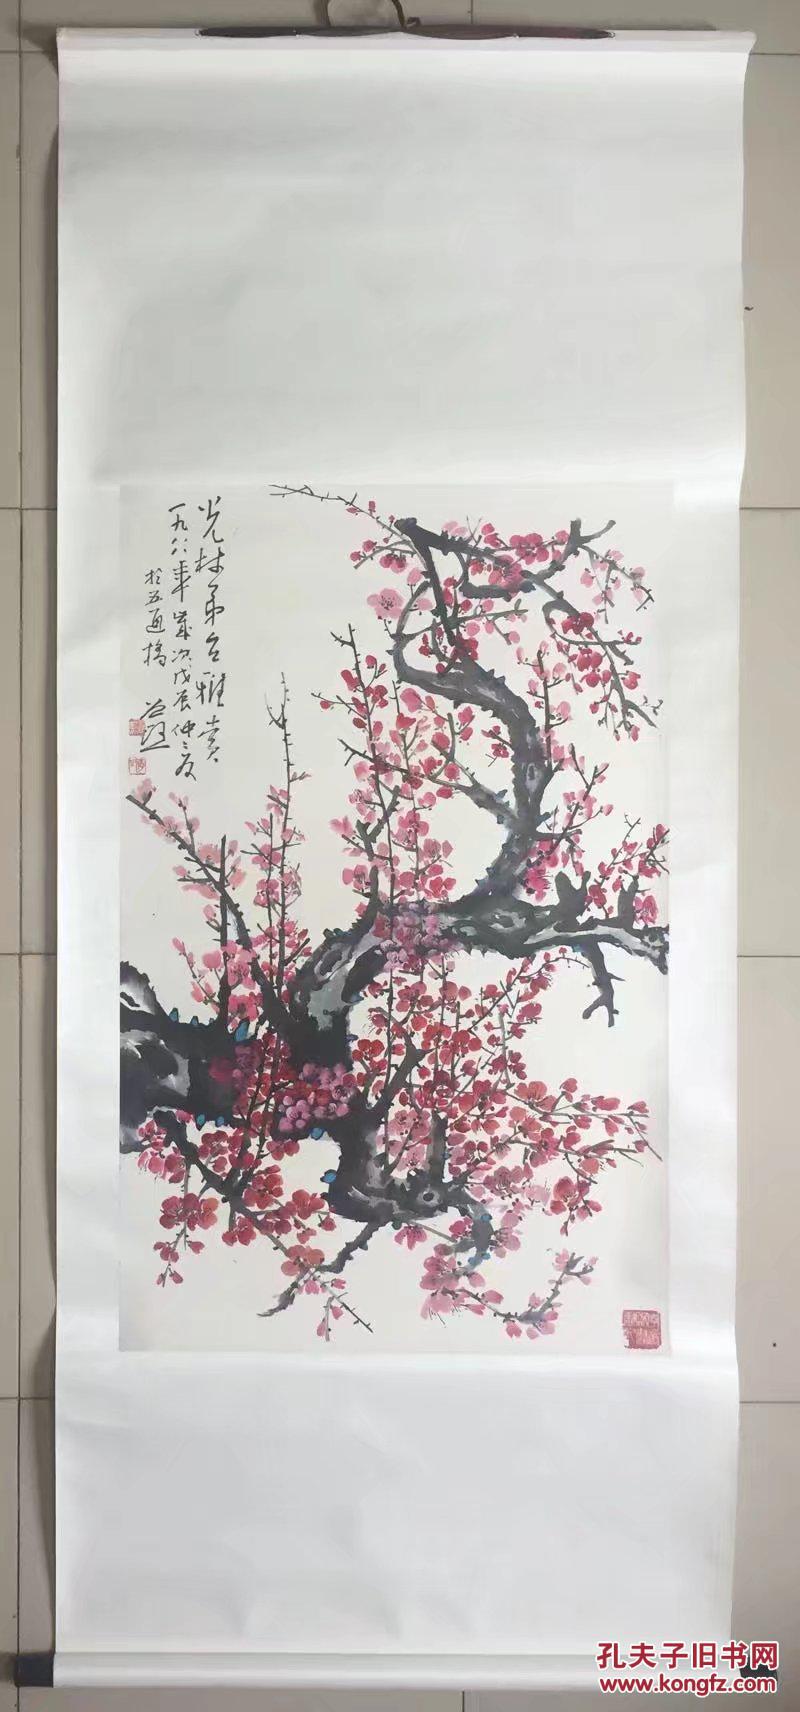 光林弟台雅赏
一九八八年岁次戊辰仲夏
於五通橋
孔夫子旧书网
www.kongfz.com